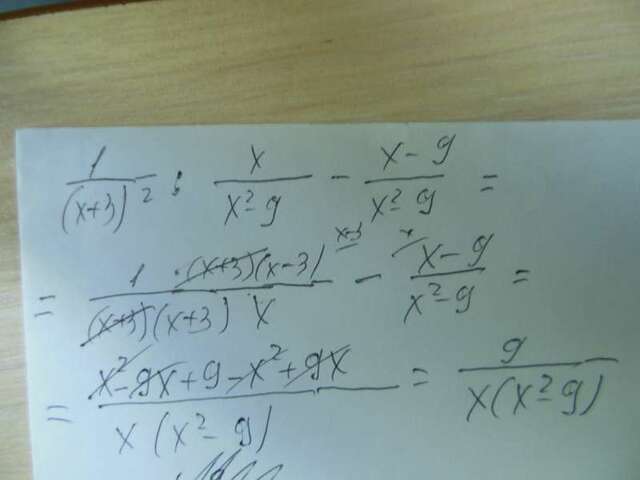 1/(x+3)² : x/(x²-9) - (x-9)/(x²-9) =
= 1·(x+3)(x-3)/((x+3)(x+3)x) ^(x-3) - ^(x) (x-9)/(x²-9) =
= (x²-9x+9-x²+9x)/(x(x²-9)) = 9/(x(x²-9))